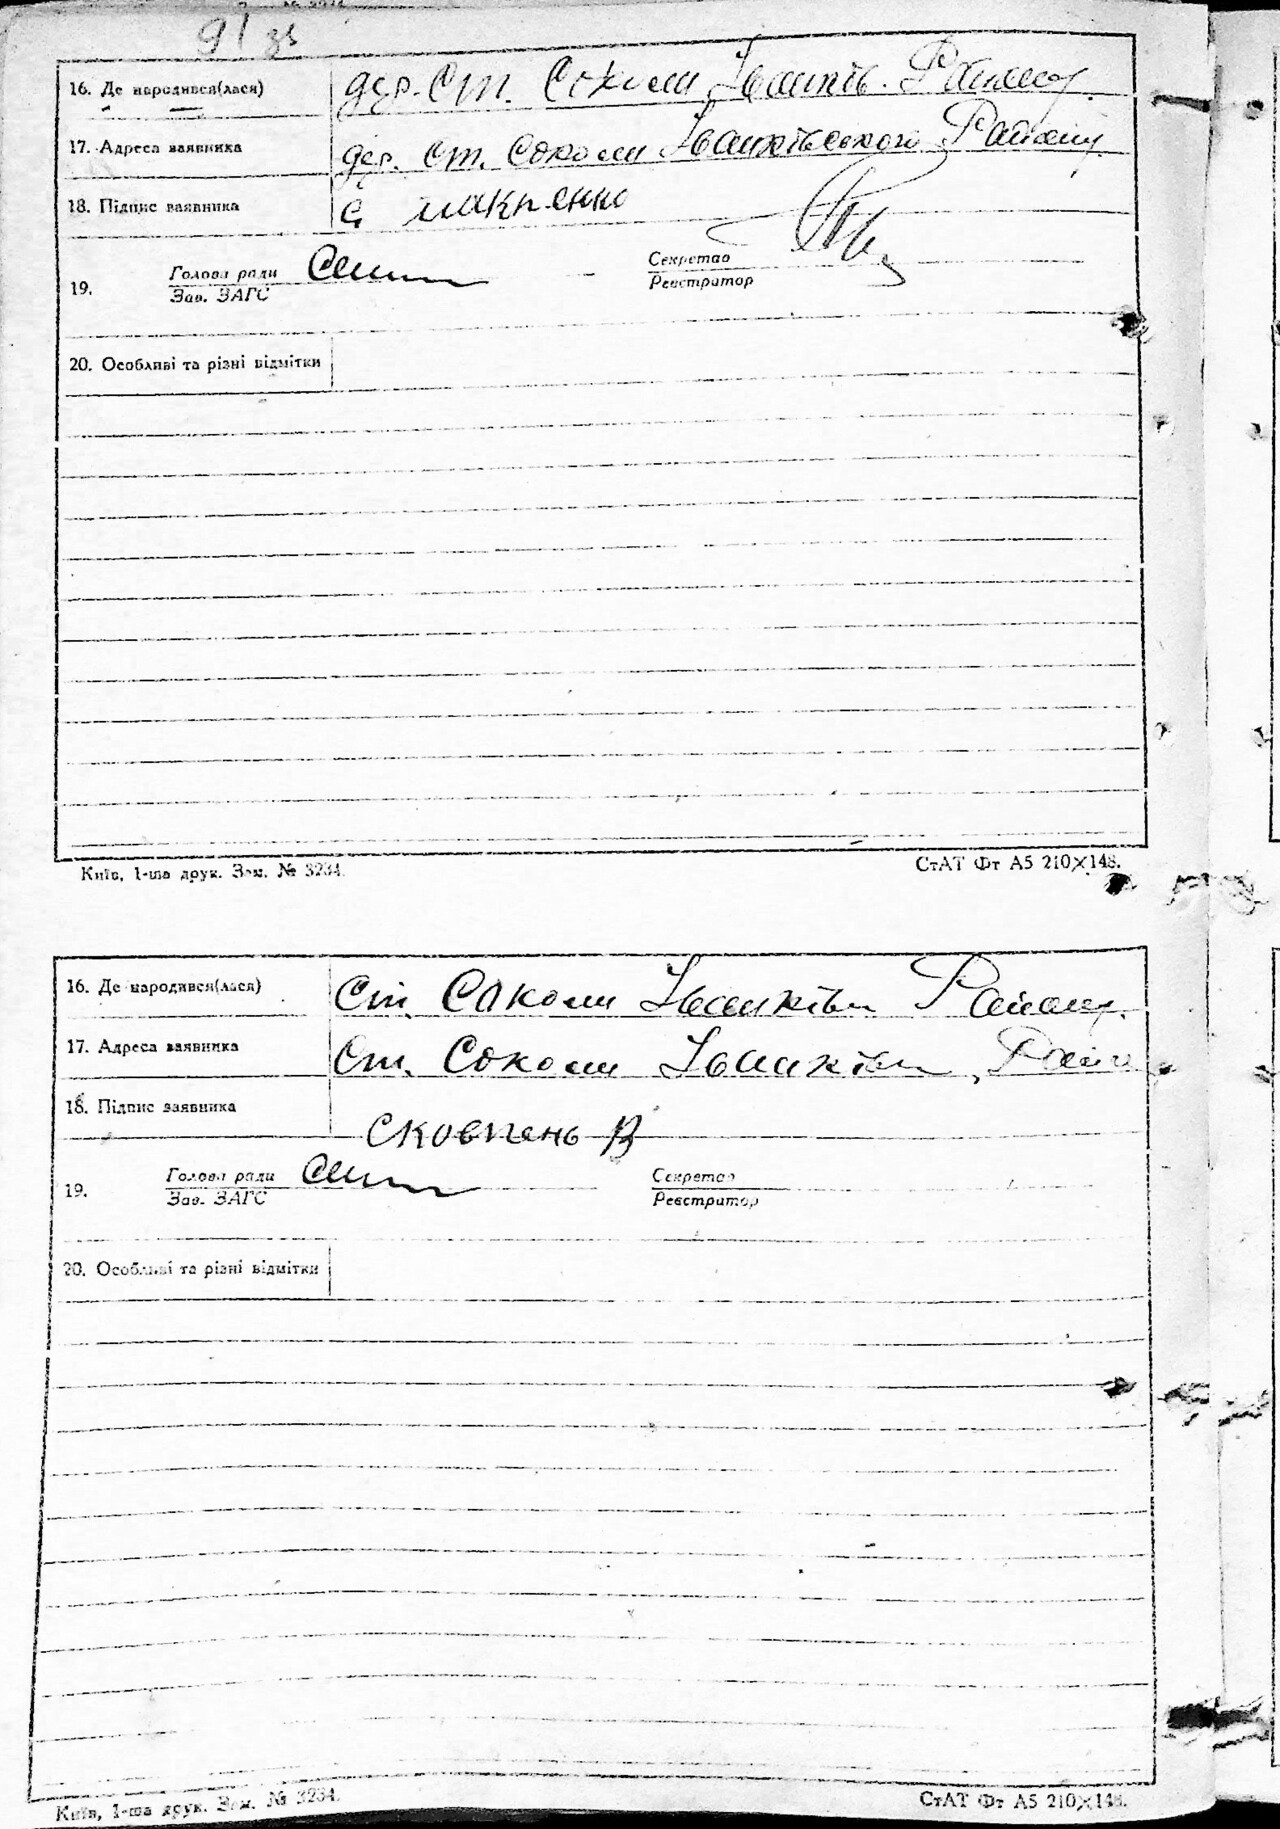 91 зв
16. Де народився(лася) дер. Ст. Соколи Іванків. Району.
17. Адреса заявника дер. Ст. Соколи Іванківського Району
18. Підпис заявника С макпенко
Голова ради Секретар
19.
Зав. ЗАГС Реєстратор
20. Особливі та різні відмітки
Київ, 1-ша друк. Зам. № 3234. СтАТ Фт А5 210×148.
16. Де народився(лася) Ст. Соколи Іванків Району.
17. Адреса заявника Ст. Соколи Іванків
18. Підпис заявника Сковпень В
Голова ради Секретар
19.
Зав. ЗАГС Реєстратор
20. Особливі та різні відмітки
Київ, 1-ша друк. Зам. № 3234. СтАТ Фт А5 210×148.